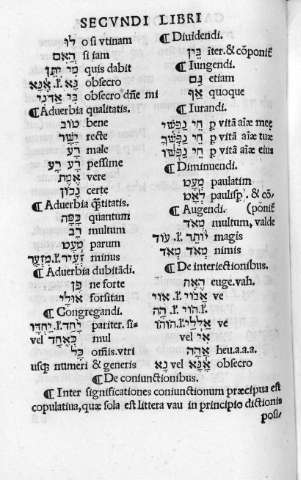 SECVNDI LIBRI
לו o si vtinam
האם si iam
מי יתן quis dabit
נא .ל. אנא obsecro
בי אדני obsecro dñe mi
¶ Aduerbia qualitatis.
טוב bene
ישר recte
רע male
רע רע pessime
אמת vere
נכון certe
¶ Aduerbia q̃titatis.
כמה quantum
רב multum
מעט parum
זעיר .ל. מזער minus
¶ Aduerbia dubitãdi.
פן ne forte
אולי forsitan
¶ Congregandi.
יחד .ל. יחדו pariter. si-
כאחד vel mul
כל oм̃is. vtri
usq; numeri & generis
¶ Diuidendi.
בין iter. & cõponiẽ
¶ Iungendi.
גם etiam
אף quoque
¶ Iurandi.
חי נפשי p vitã aiæ meę
חי נפשך p vitã aiæ tuæ
חי נפשו p vitã aiæ eius
¶ Diminuendi.
מעט paulatim
לאט paulisp. & cõ⸗
¶ Augendi. (poniẽ
מאד multum, valde
יותר .ל. עוד magis
מאד מאד nimis
¶ De interiectionibus.
האח euge. vah.
אבוי .ל. אוי ve
הוי .ל. הה
אללי .ל. הוהו ve
אי vel
אהה heu.a.a.a.
נא vel אנא obsecro
¶ De coniunctionibus.
¶ Inter significationes coniunctionum præcipua est
copulatiua, quæ sola est littera vau in principio dictionis
posi⸗